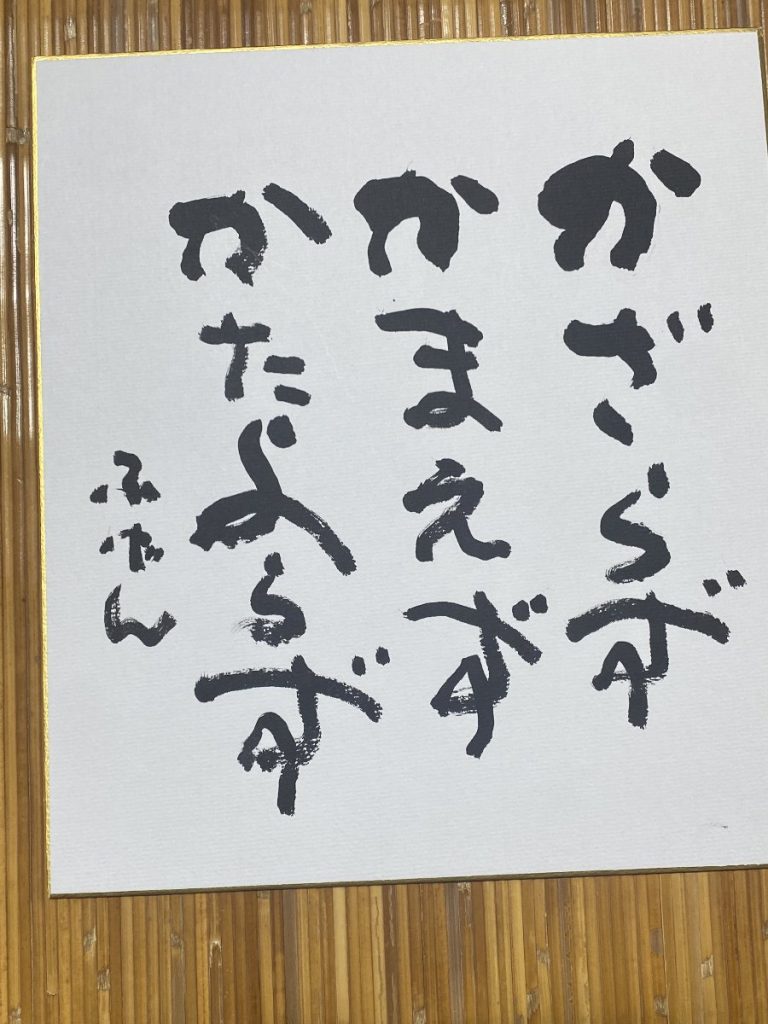 かざらず
かまえず
かたよらず
ふだん